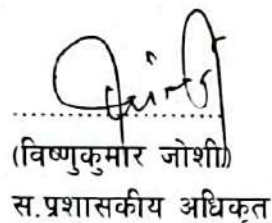 (विष्णुकुमार जोशी)
स.प्रशासकीय अधिकृत